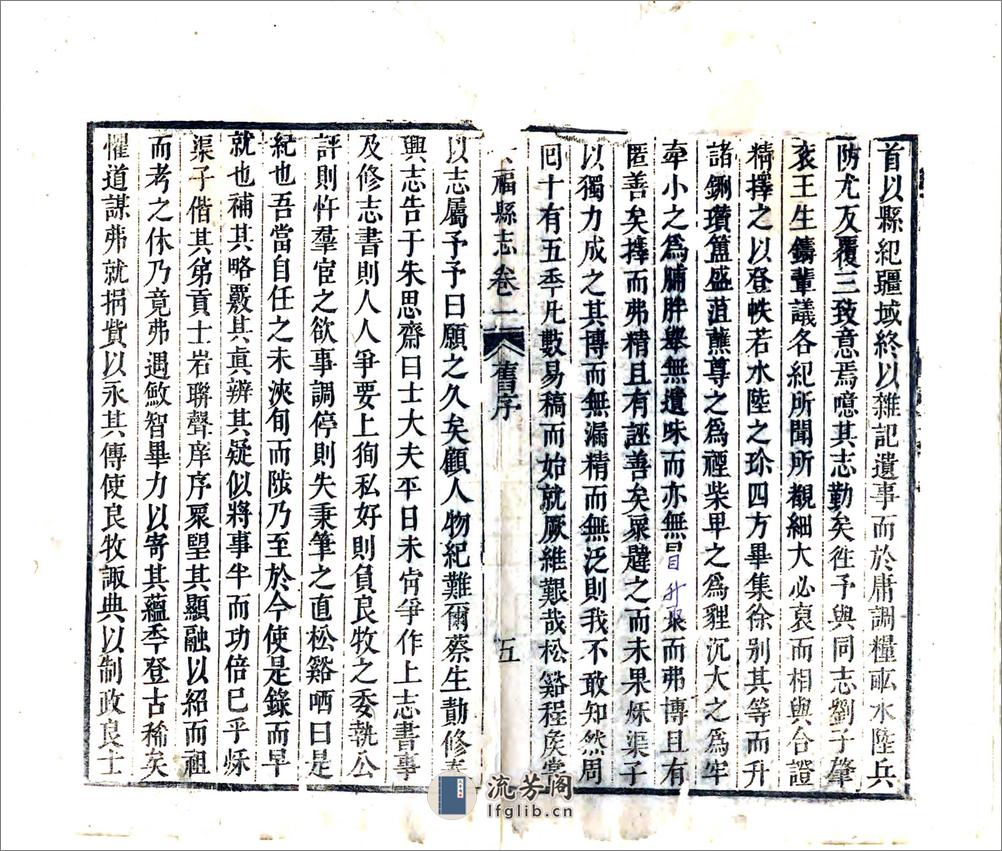 首以縣紀疆域終以雜記遺事而於庸調糧䣃水陸兵
防尤反覆三致意焉噫其志勤矣徃予與同志劉子肇
袞王生鑄輩議各紀所聞所觀細大必裒而相與合證
精擇之以登帙若水陸之珎四方畢集徐别其等而升
諸鉶瓚簠盛菹蕉尊之爲禋柴卑之爲貍沉大之爲牢
牽小之爲脯胖舉無遺味而亦無 目升聚而弗博且有
匿善矣擇而弗精且有誣善矣衆韙之而未果烁渠子
以獨力成之其博而無漏精而無泛則我不敢知然周
囘十有五季凡數易稿而始就厥維艱哉松谿程矦嘗
福縣志卷一 舊序 五
以志屬予予曰願之久矣顧人物紀難爾蔡生勣修泰
興志告于朱思齋曰士大夫平日未肻爭作上志書事
及修志書則人人爭要上狥私好則負良牧之委執公
評則忤羣宦之欲事調停則失秉筆之直松谿哂曰是
紀也吾當自任之未浹旬而陟乃至於今使是錄而早
就也補其略覈其眞辨其疑似將事半而功倍巳乎烁
渠子偕其弟貢士岩聯聲庠序衆朢其顯融以紹而祖
而考之休乃竟弗遇敏智畢力以寄其蘊季登古稀矣
懼道謀弗就捐貲以永其傳使良牧諏典以制政良士
流芳阁
lfglib.cn